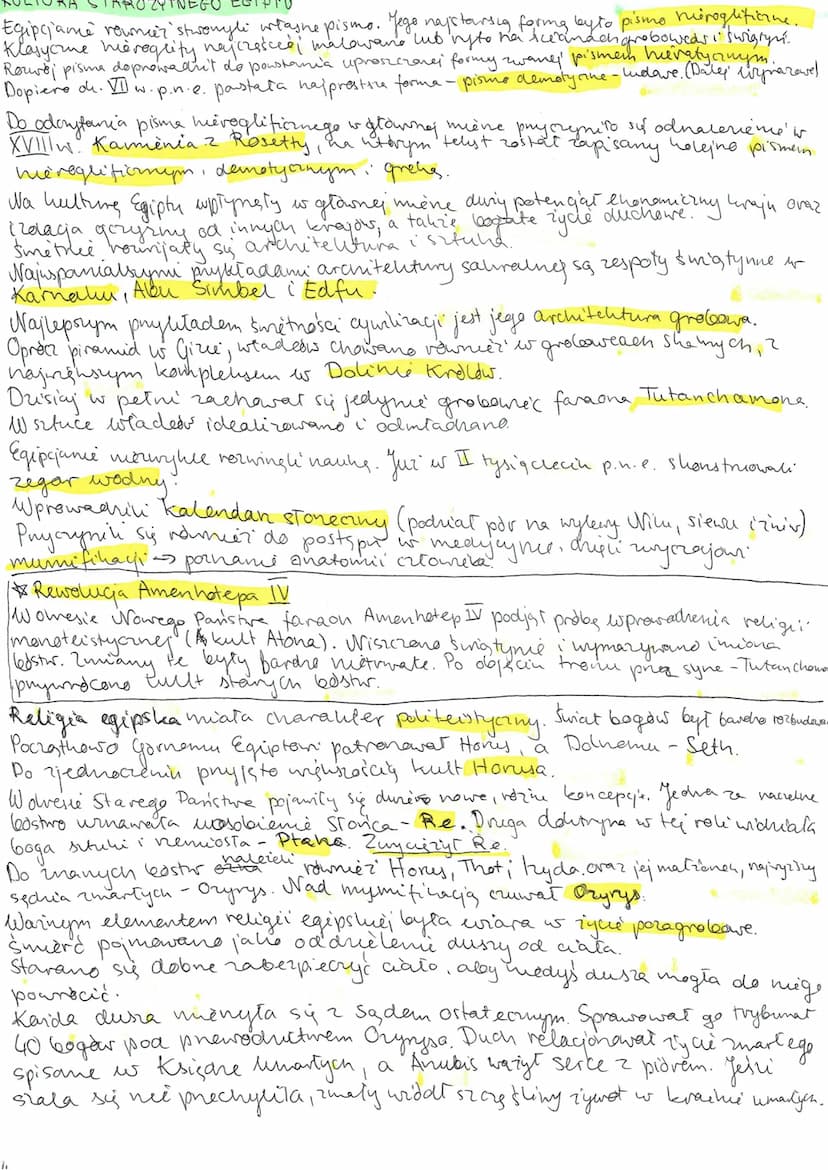 KULTURA STAROŻYTNEGO EGIPTU
Egipcjanie również stworzyli własne pismo. Jego najstarszą formą było pismo hieroglificzne.
Klasyczne hieroglify najczęściej malowano lub ryto na ścianach grobowców i świątyń.
Rozwój pisma doprowadził do powstania uproszczonej formy zwanej pismem hieratycznym.
Dopiero ok. VII w. p.n.e. powstała najprostsza forma - pismo demotyczne - ludowe. (Dalej wyprazowe)
Do odczytania pisma hieroglificznego w głównej mierze przyczyniło się odnalezienie w
XVIII w. Kamienia z Rosetty, na którym tekst został zapisany kolejno pismem
hieroglificznym, demotycznym i greką.
Na kulturę Egiptu wpłynęły w głównej mierze duży potencjał ekonomiczny kraju oraz
izolacja ojczyzny od innych krajów, a także bogate życie duchowe.
Świetnie rozwijały się architektura i sztuka.
Najwspanialszymi przykładami architektury sakralnej są zespoły świątynne w
Karnaku, Abu Simbel i Edfu.
Najlepszym przykładem świetności cywilizacji jest jego architektura grobowa.
Oprócz piramid w Gizie, władców chowano również w grobowcach skalnych, z
największym kompleksem w Dolinie Królów.
Dzisiaj w pełni zachował się jedynie grobowiec faraona Tutanchamona.
W sztuce władców idealizowano i odmładzano.
Egipcjanie niezwykle rozwinęli naukę. Już w II tysiącleciu p.n.e. skonstruowali
zegar wodny.
Wprowadzili kalendarz słoneczny (podział pór na wylewy Nilu, siewu i żniw)
Przyczynili się również do postępu w medycynie, dzięki zwyczajowi
mumifikacji → poznanie anatomii człowieka.
* Rewolucja Amenhotepa IV
W okresie Nowego Państwa faraon Amenhotep IV podjął próbę wprowadzenia religii
monoteistycznej (kult Atona). Niszczono świątynie i wymazywano imiona
bóstw. Zmiany te były bardzo nietrwałe. Po objęciu tronu przez syna - Tutanchamo
przywrócono kult starych bóstw.
Religia egipska miała charakter politeistyczny. Świat bogów był bardzo rozbudowa
Początkowo Górnemu Egiptowi patronował Horus, a Dolnemu - Seth.
Po zjednoczeniu przyjęto większością kult Horusa.
W okresie Starego Państwa pojawiły się dwie nowe, różne koncepcje. Jedna za naczelne
bóstwo uznawała uosobienie słońca - Re. Druga doktryna w tej roli widziała
boga sztuki i rzemiosła - Ptaha. Zwyciężył Re.
Do znanych bóstw należeli również Horus, Thot i Izyda oraz jej małżonek, najwyższy
sędzia zmarłych - Ozyrys. Nad mumifikacją czuwał Ozyrys.
Ważnym elementem religii egipskiej była wiara w życie pozagrobowe.
Śmierć pojmowano jako oddzielenie duszy od ciała.
Starano się dobrze zabezpieczyć ciało, aby kiedyś dusza mogła do niego
powrócić.
Każda dusza mierzyła się z sądem ostatecznym. Sprawował go trybunał
40 bogów pod przewodnictwem Ozyrysa. Duch relacjonował życie zmarłego
spisane w Księdze Umarłych, a Anubis ważył serce z piórem. Jeśli
szala się nie przechyliła, zmarły wiódł szczęśliwy żywot w krainie umarłych.